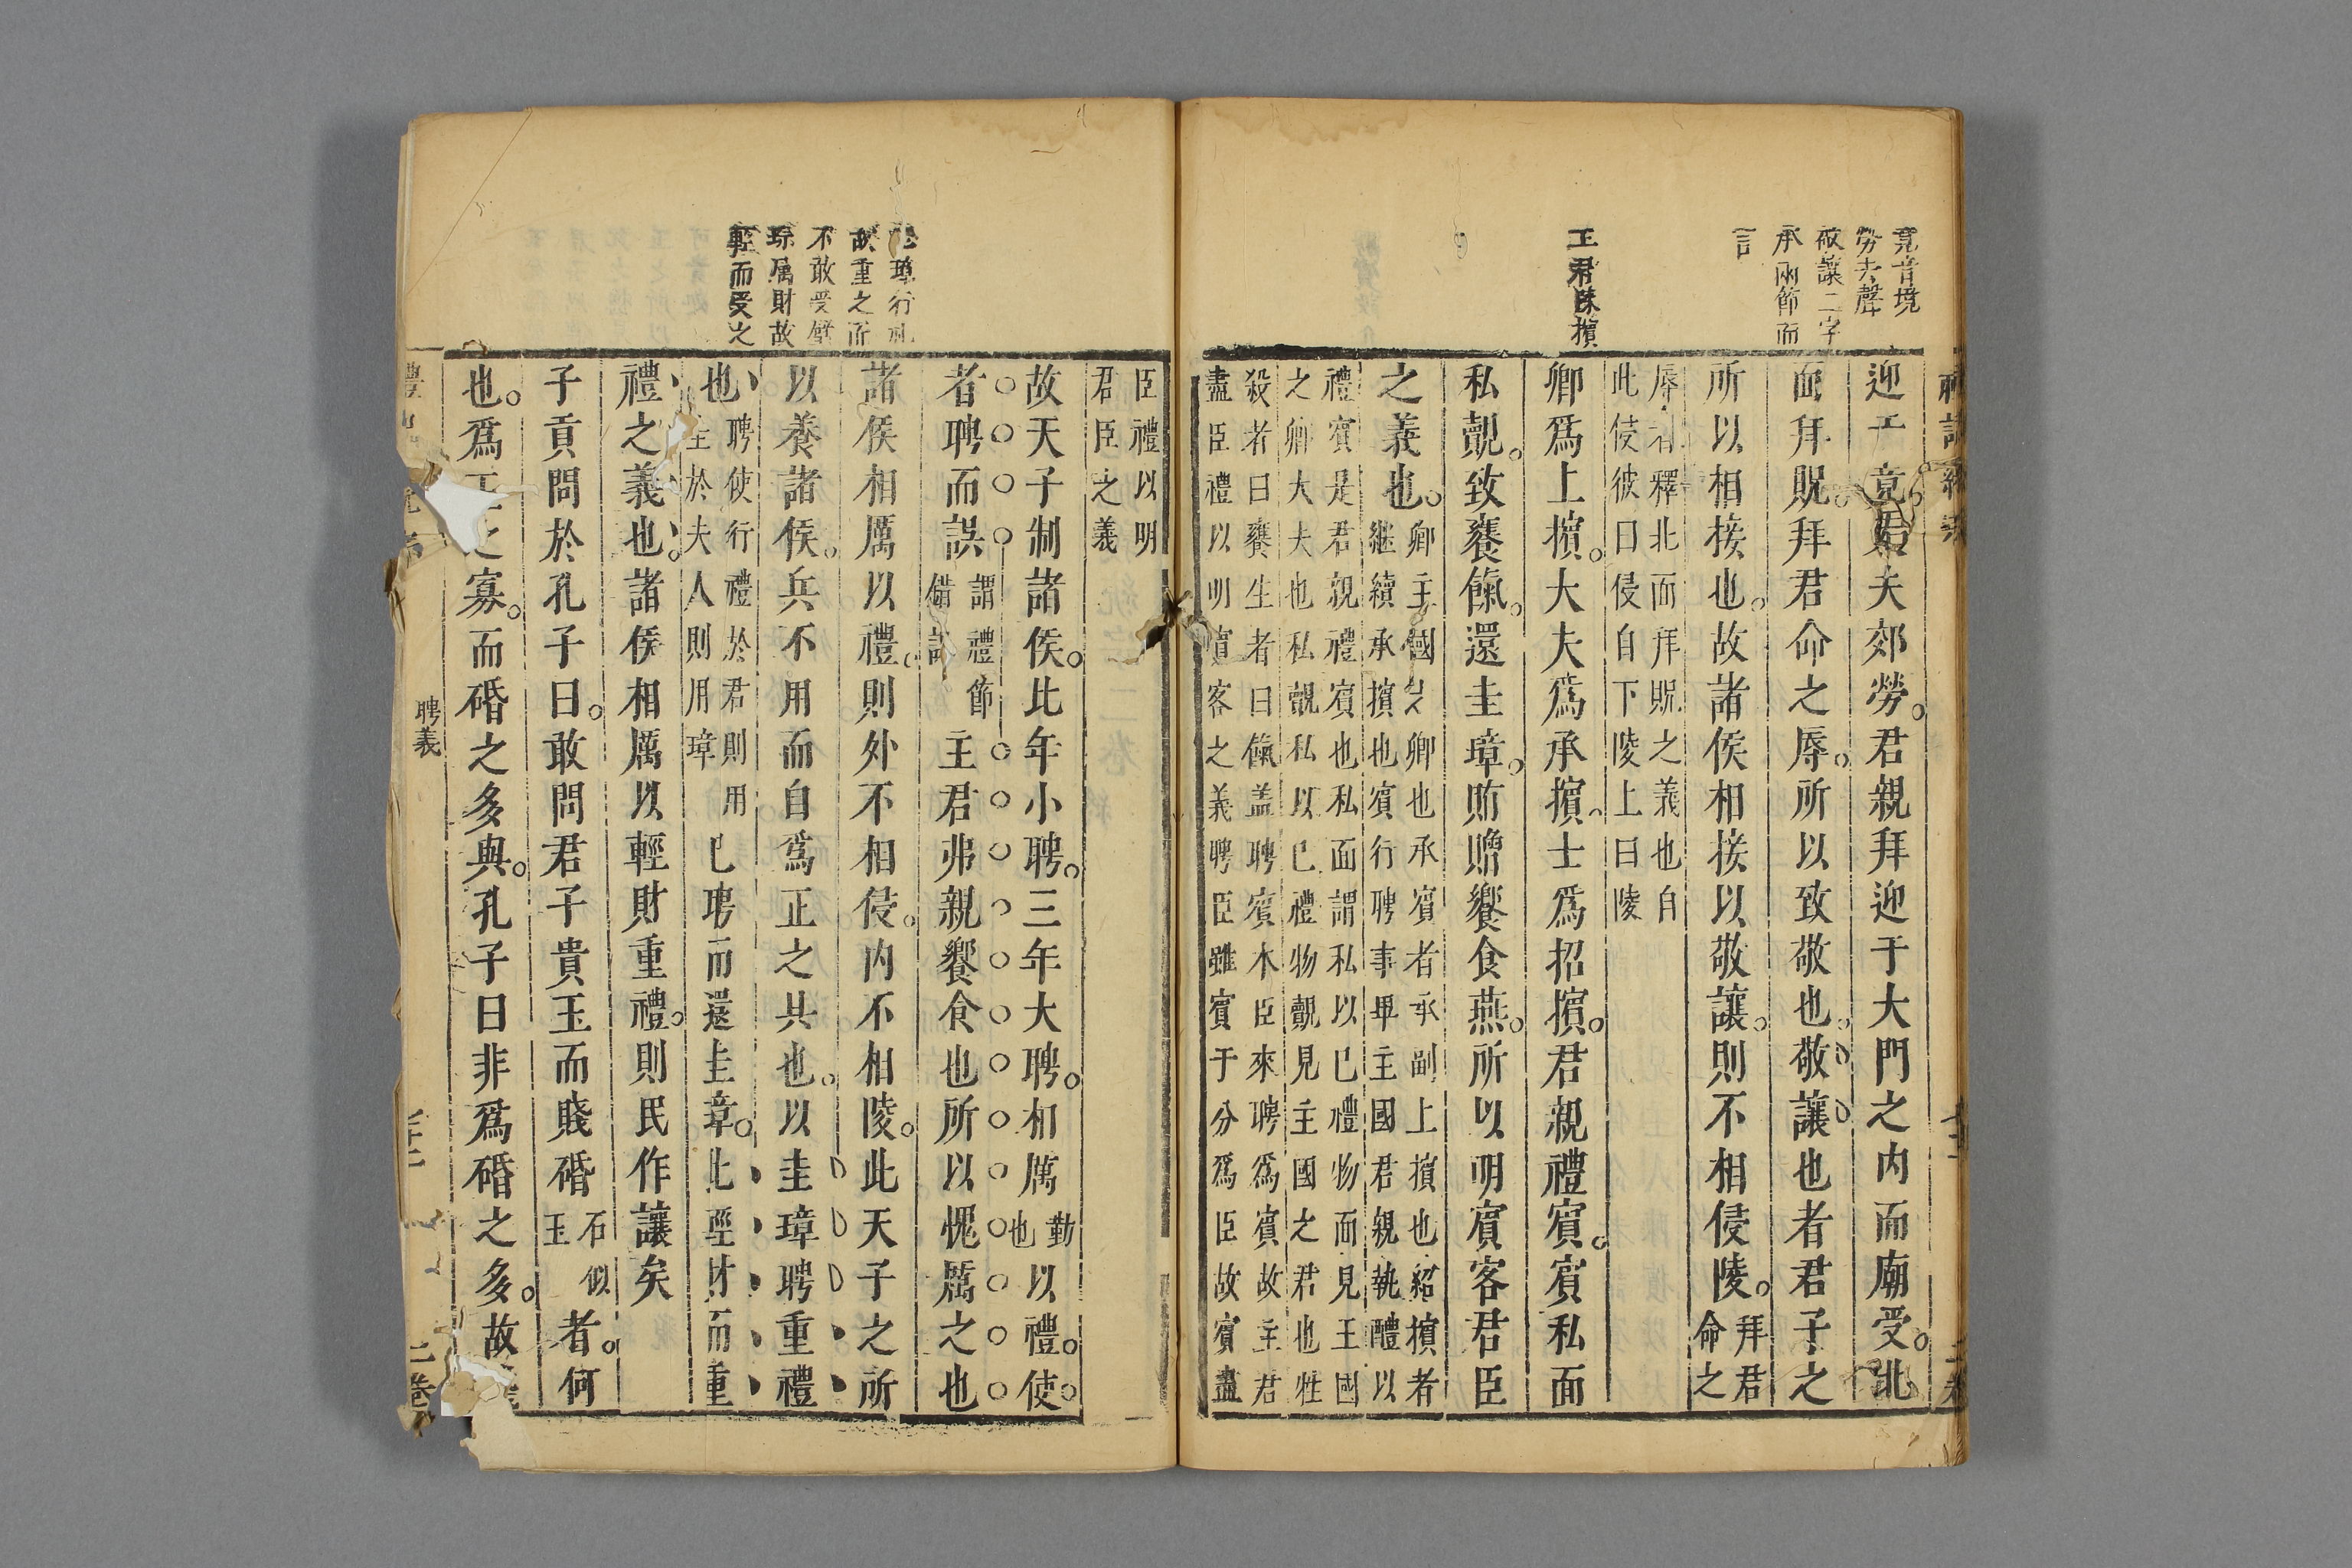 竟音境
勞去聲
敬讓二字
承兩節而
言
主君陳擯
迎于竟。大夫郊勞。君親拜迎于大門之内而廟受。北
面拜貺。拜君命之辱。所以致敬也。敬讓也者君子之
所以相接也。故諸侯相接以敬讓。則不相侵陵。拜君
命之
辱者釋北面拜貺之義也自
此侵彼曰侵自下陵上曰陵
卿爲上擯。大夫爲承擯。士爲招擯。君親禮賓。賓私面
私覿。致饔餼。還圭璋。賄贈饗食燕。所以明賓客君臣
之義也。卿主國之卿也承賓者承副上擯也紹擯者
繼續承擯也賓行聘事畢主國君親執醴以
禮賓是君親禮賓也私面謂私以已禮物面見主國
之卿大夫也私覿私以已禮物覿見主國之君也牲
殺者曰饔生者曰餼盖聘賓本臣來聘爲賓故主君
盡臣禮以明賓客之義聘臣雖賓于分爲臣故賓盡
臣禮以明
君臣之義
璋行礼
故重之而
不敢受璧
琮属財故
輕而受之
故天子制諸侯。比年小聘。三年大聘。相厲勤
也以禮。使。
者聘而誤謂禮節
錯主君弗親饗食也所以愧厲之也
諸侯相厲以禮。則外不相侵。内不相陵。此天子之所
以養諸侯。兵不用而自爲正之具也。以圭璋聘重禮
也聘使行禮於君則用
圭於夫人則用璋已聘而還圭章。此輕財而重
禮之義也。諸侯相厲以輕財重禮。則民作讓矣
子貢問於孔子曰。敢問君子貴玉而賤碈石似
玉者。何
也。爲玉之寡。而碈之多與。孔子曰非爲碈之多。故
聘義